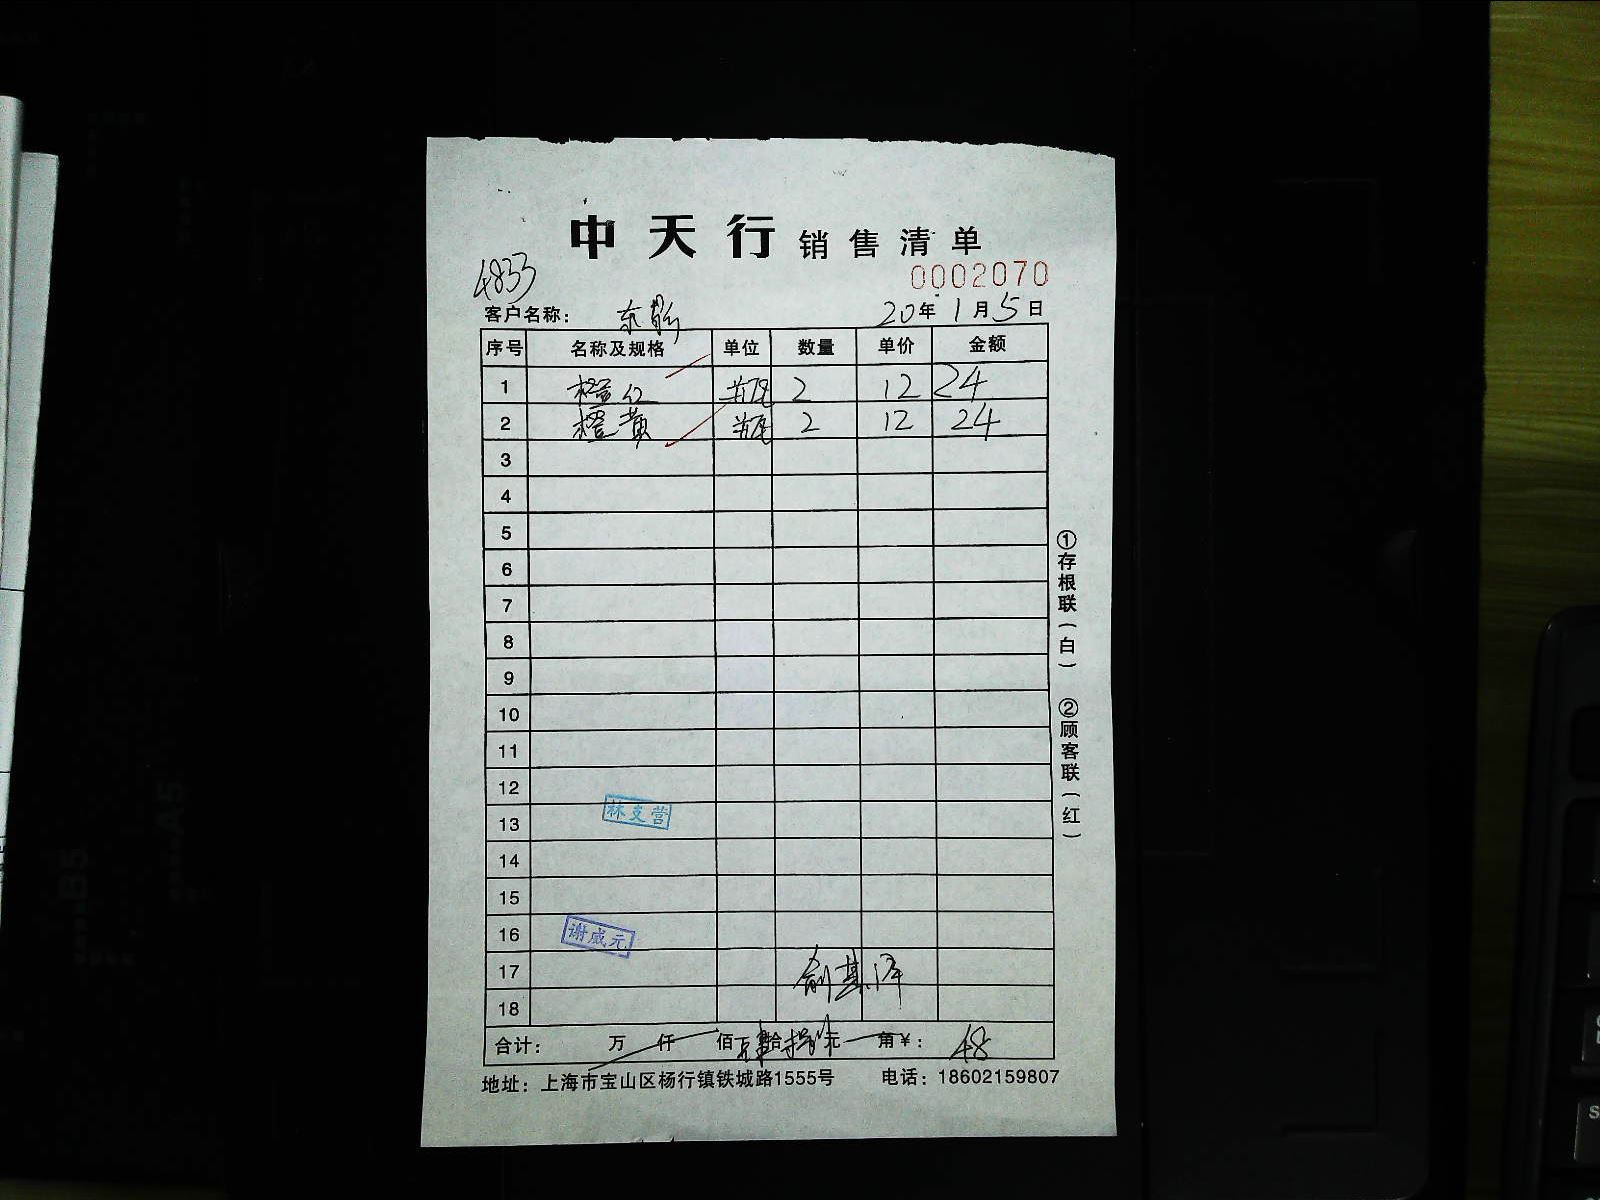 中天行 销售清单
4833
0002070
客户名称： 20年1月5日
序号 名称及规格 单位 数量 单价 金额
1 橙红 瓶 2 12 24
2 橙黄 瓶 2 12 24
3
4
5
6
7
8
9
10
11
12
13
林支营
14
15
16
谢成元
17
18
合计： 万 仟 佰 拾 元 角￥：48
地址：上海市宝山区杨行镇铁城路1555号 电话：18602159807
①存根联（白）
②顾客联（红）